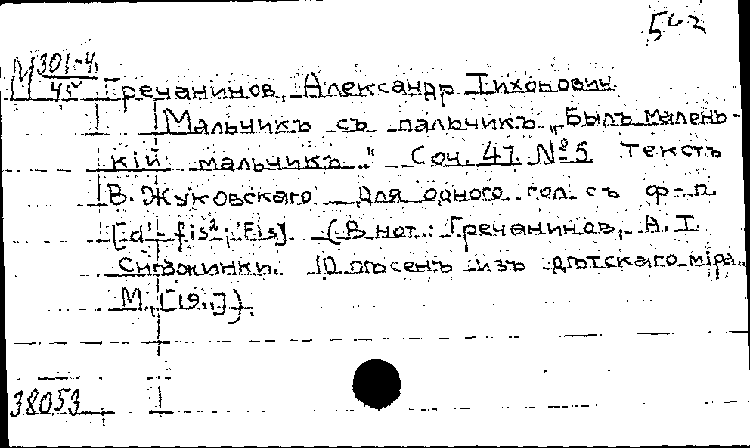 562
М 301-4
45
Гречанинов, Александр Тихонович
Мальчикъ съ пальчикъ „Былъ малень-
кій мальчикъ..." Соч. 47 № 5 Текстъ
В. Жуковскаго Для одного гол. съ ф-п.
[d¹-fis²; Fis] (В нот.: Гречанинов, А. Т.
Снѣжинки. 10 пѣсенъ изъ дѣтскаго міра.
М. [19..])
38053